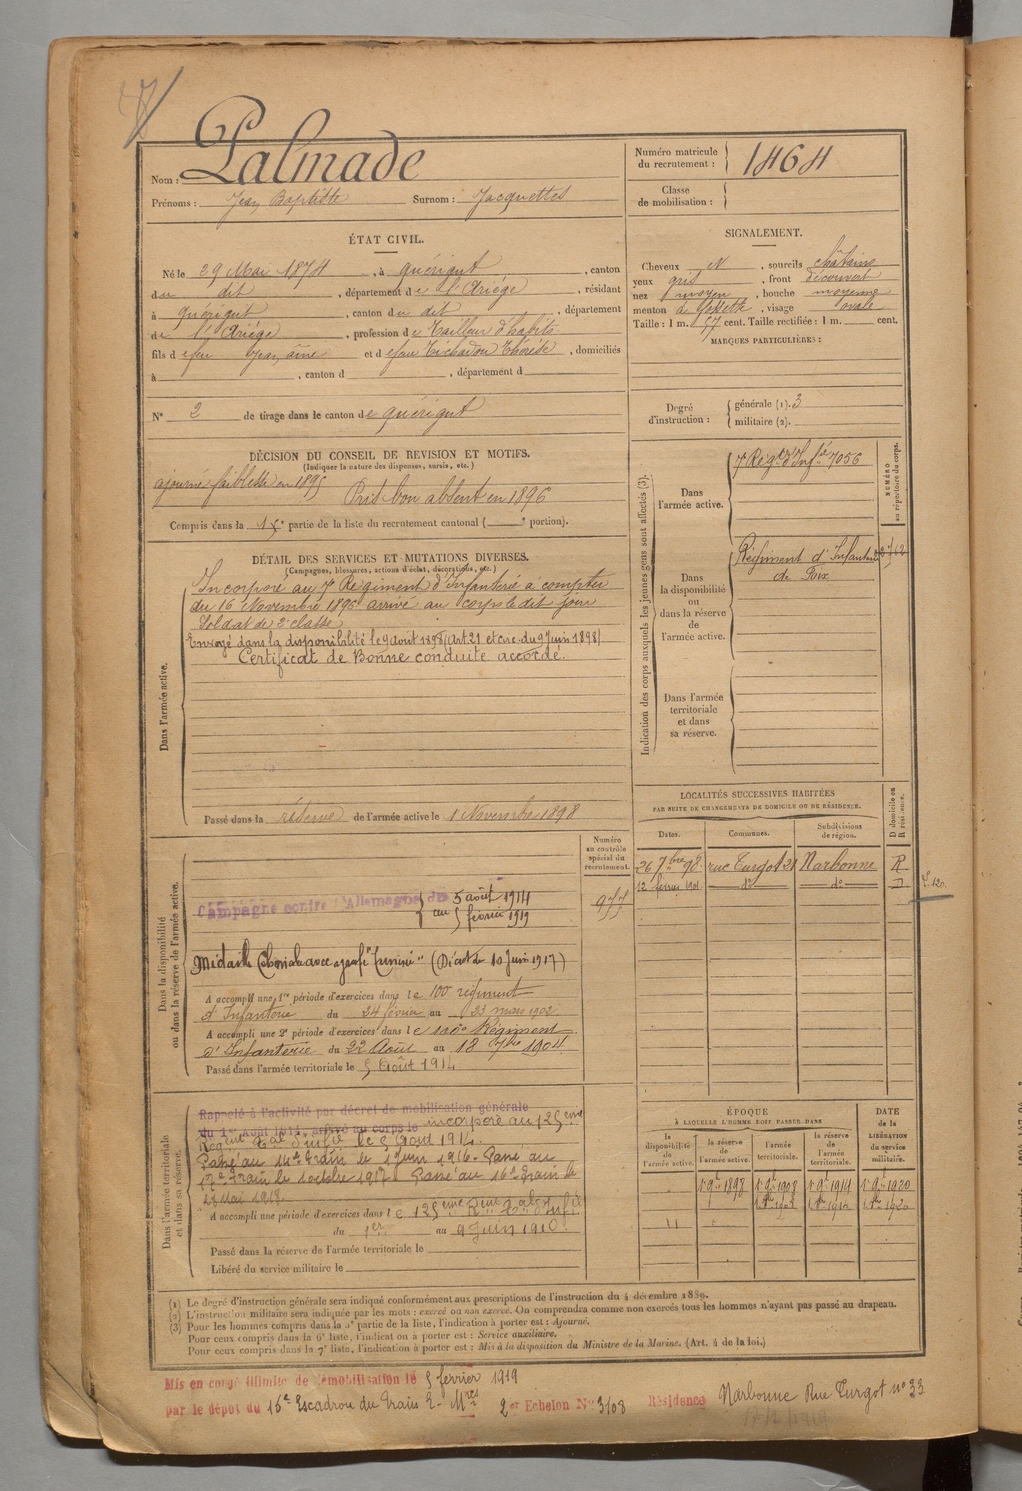 Palmade
Nom :
Prénoms : Jean Baptiste Surnom : Jacquettes
Numéro matricule du recrutement : 1464
Classe de mobilisation :
ÉTAT CIVIL.
Né le 29 Mai 1874, à quérigut, canton
du dit, département de l'Ariège, résidant
à quérigut, canton du dit, département
de l'Ariège, profession de tailleur d'habits
fils de feu Jean, aîné et de feu Tichadou Thérèse, domiciliés
à , canton d , département d
N° 2 de tirage dans le canton de quérigut
SIGNALEMENT.
Cheveux N, sourcils châtains
yeux gris, front découvert
nez moyen, bouche moyenne
menton à fossette, visage ovale
Taille : 1 m. 57 cent. Taille rectifiée : 1 m. cent.
MARQUES PARTICULIÈRES :
Degré d'instruction :
générale (1). 3
militaire (2).
DÉCISION DU CONSEIL DE REVISION ET MOTIFS.
(Indiquer la nature des dispenses, sursis, etc.)
ajourné faiblesse en 1895
Pris bon absent en 1896
Compris dans la 1re partie de la liste du recrutement cantonal ( e portion).
DÉTAIL DES SERVICES ET MUTATIONS DIVERSES.
(Campagnes, blessures, actions d'éclat, décorations, etc.)
Dans l'armée active.
Incorporé au 7e Régiment d'Infanterie à compter
du 16 Novembre 1896 arrivé au corps le dit jour
Soldat de 2e classe
Envoyé dans la disponibilité le 9 août 1898 (Art. 21 et circ. du 9 Juin 1898)
Certificat de Bonne conduite accordé.
Passé dans la réserve de l'armée active le 1 Novembre 1898
Indication des corps auxquels les jeunes gens sont affectés (3).
NUMÉRO au répertoire du corps.
Dans l'armée active.
7e Régt d'Infie 7056
Dans la disponibilité ou dans la réserve de l'armée active.
Régiment d'Infanterie
de Foix
Dans l'armée territoriale et dans sa réserve.
LOCALITÉS SUCCESSIVES HABITÉES
PAR SUITE DE CHANGEMENTS DE DOMICILE OU DE RÉSIDENCE.
Dates. Communes. Subdivisions de région. D domicile ou R résidence.
26 7bre 98 rue Turgot 21 Narbonne R
12 février 1901 do do D
Dans la disponibilité ou dans la réserve de l'armée active.
Numéro au contrôle spécial du recrutement.
977
Campagne contre l'Allemagne du 5 août 1914
au 5 février 1919
Médaille Coloniale avec agrafe "Tunisie" (Décret du 10 Juin 1917)
A accompli une 1re période d'exercices dans le 100e régiment
d'Infanterie du 24 février au 23 mars 1902
A accompli une 2e période d'exercices dans le Régiment
d'Infanterie du 22 Août au 18 7bre 1904
Passé dans l'armée territoriale le 5 Août 1914
Dans l'armée territoriale et dans sa réserve.
Rappelé à l'activité par décret de mobilisation générale
du 1er Août 1914, arrivé au corps le incorporé au 125ème
Régiment Tal d'infie le 5 Août 1914.
Passé au 14e Train le 1 Juin 1916. Passé au
Train le 1 octobre 1917. Passé au 16e Train le
Mai 1918
A accompli une période d'exercices dans le 125ème Régt Tal d'Infie
du 1er au 9 Juin 1910.
Passé dans la réserve de l'armée territoriale le
Libéré du service militaire le
ÉPOQUE
À LAQUELLE L'HOMME DOIT PASSER DANS
la disponibilité de l'armée active. la réserve de l'armée active. l'armée territoriale. la réserve de l'armée territoriale.
DATE de la LIBÉRATION du service militaire.
1 9bre 1898 1 9bre 1908 1 9bre 1914 1 9bre 1920
(1) Le degré d'instruction générale sera indiqué conformément aux prescriptions de l'instruction du 4 décembre 1889.
(2) L'instruction militaire sera indiquée par les mots : exercé ou non exercé. On comprendra comme non exercés tous les hommes n'ayant pas passé au drapeau.
(3) Pour les hommes compris dans la 5e partie de la liste, l'indication à porter est : Ajourné.
Pour ceux compris dans la 6e liste, l'indication à porter est : Service auxiliaire.
Pour ceux compris dans la 7e liste, l'indication à porter est : Mis à la disposition du Ministre de la Marine. (Art. 4 de la loi.)
Mis en congé illimité de démobilisation le 5 février 1919
par le dépôt du 16e Escadron du Train 2e Echelon No 3108 Résidence Narbonne Rue Turgot no 33